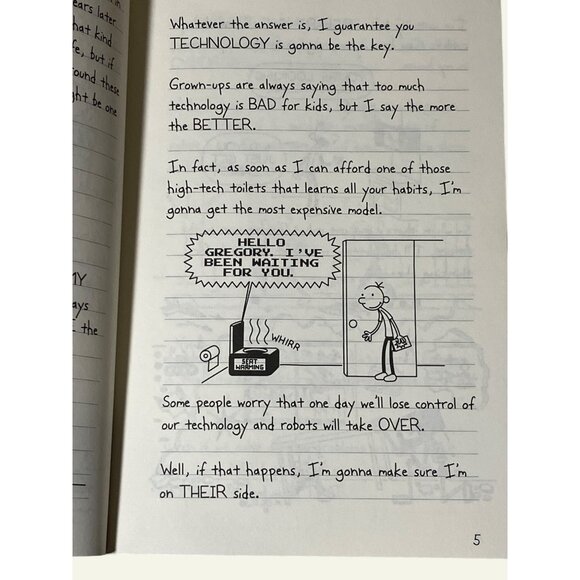 in
ears later
hat kind
fe, but if
ound these
ght be one
MY
ays
the
Whatever the answer is, I guarantee you
TECHNOLOGY is gonna be the key.
Grown-ups are always saying that too much
technology is BAD for kids, but I say the more
the BETTER.
In fact, as soon as I can afford one of those
high-tech toilets that learns all your habits, I'm
gonna get the most expensive model.
HELLO
GREGORY. I'VE
BEEN WAITING
FOR YOU.
WHIRR
SEAT
WARMING
Some people worry that one day we'll lose control of
our technology and robots will take OVER.
Well, if that happens, I'm gonna make sure I'm
on THEIR side.
5